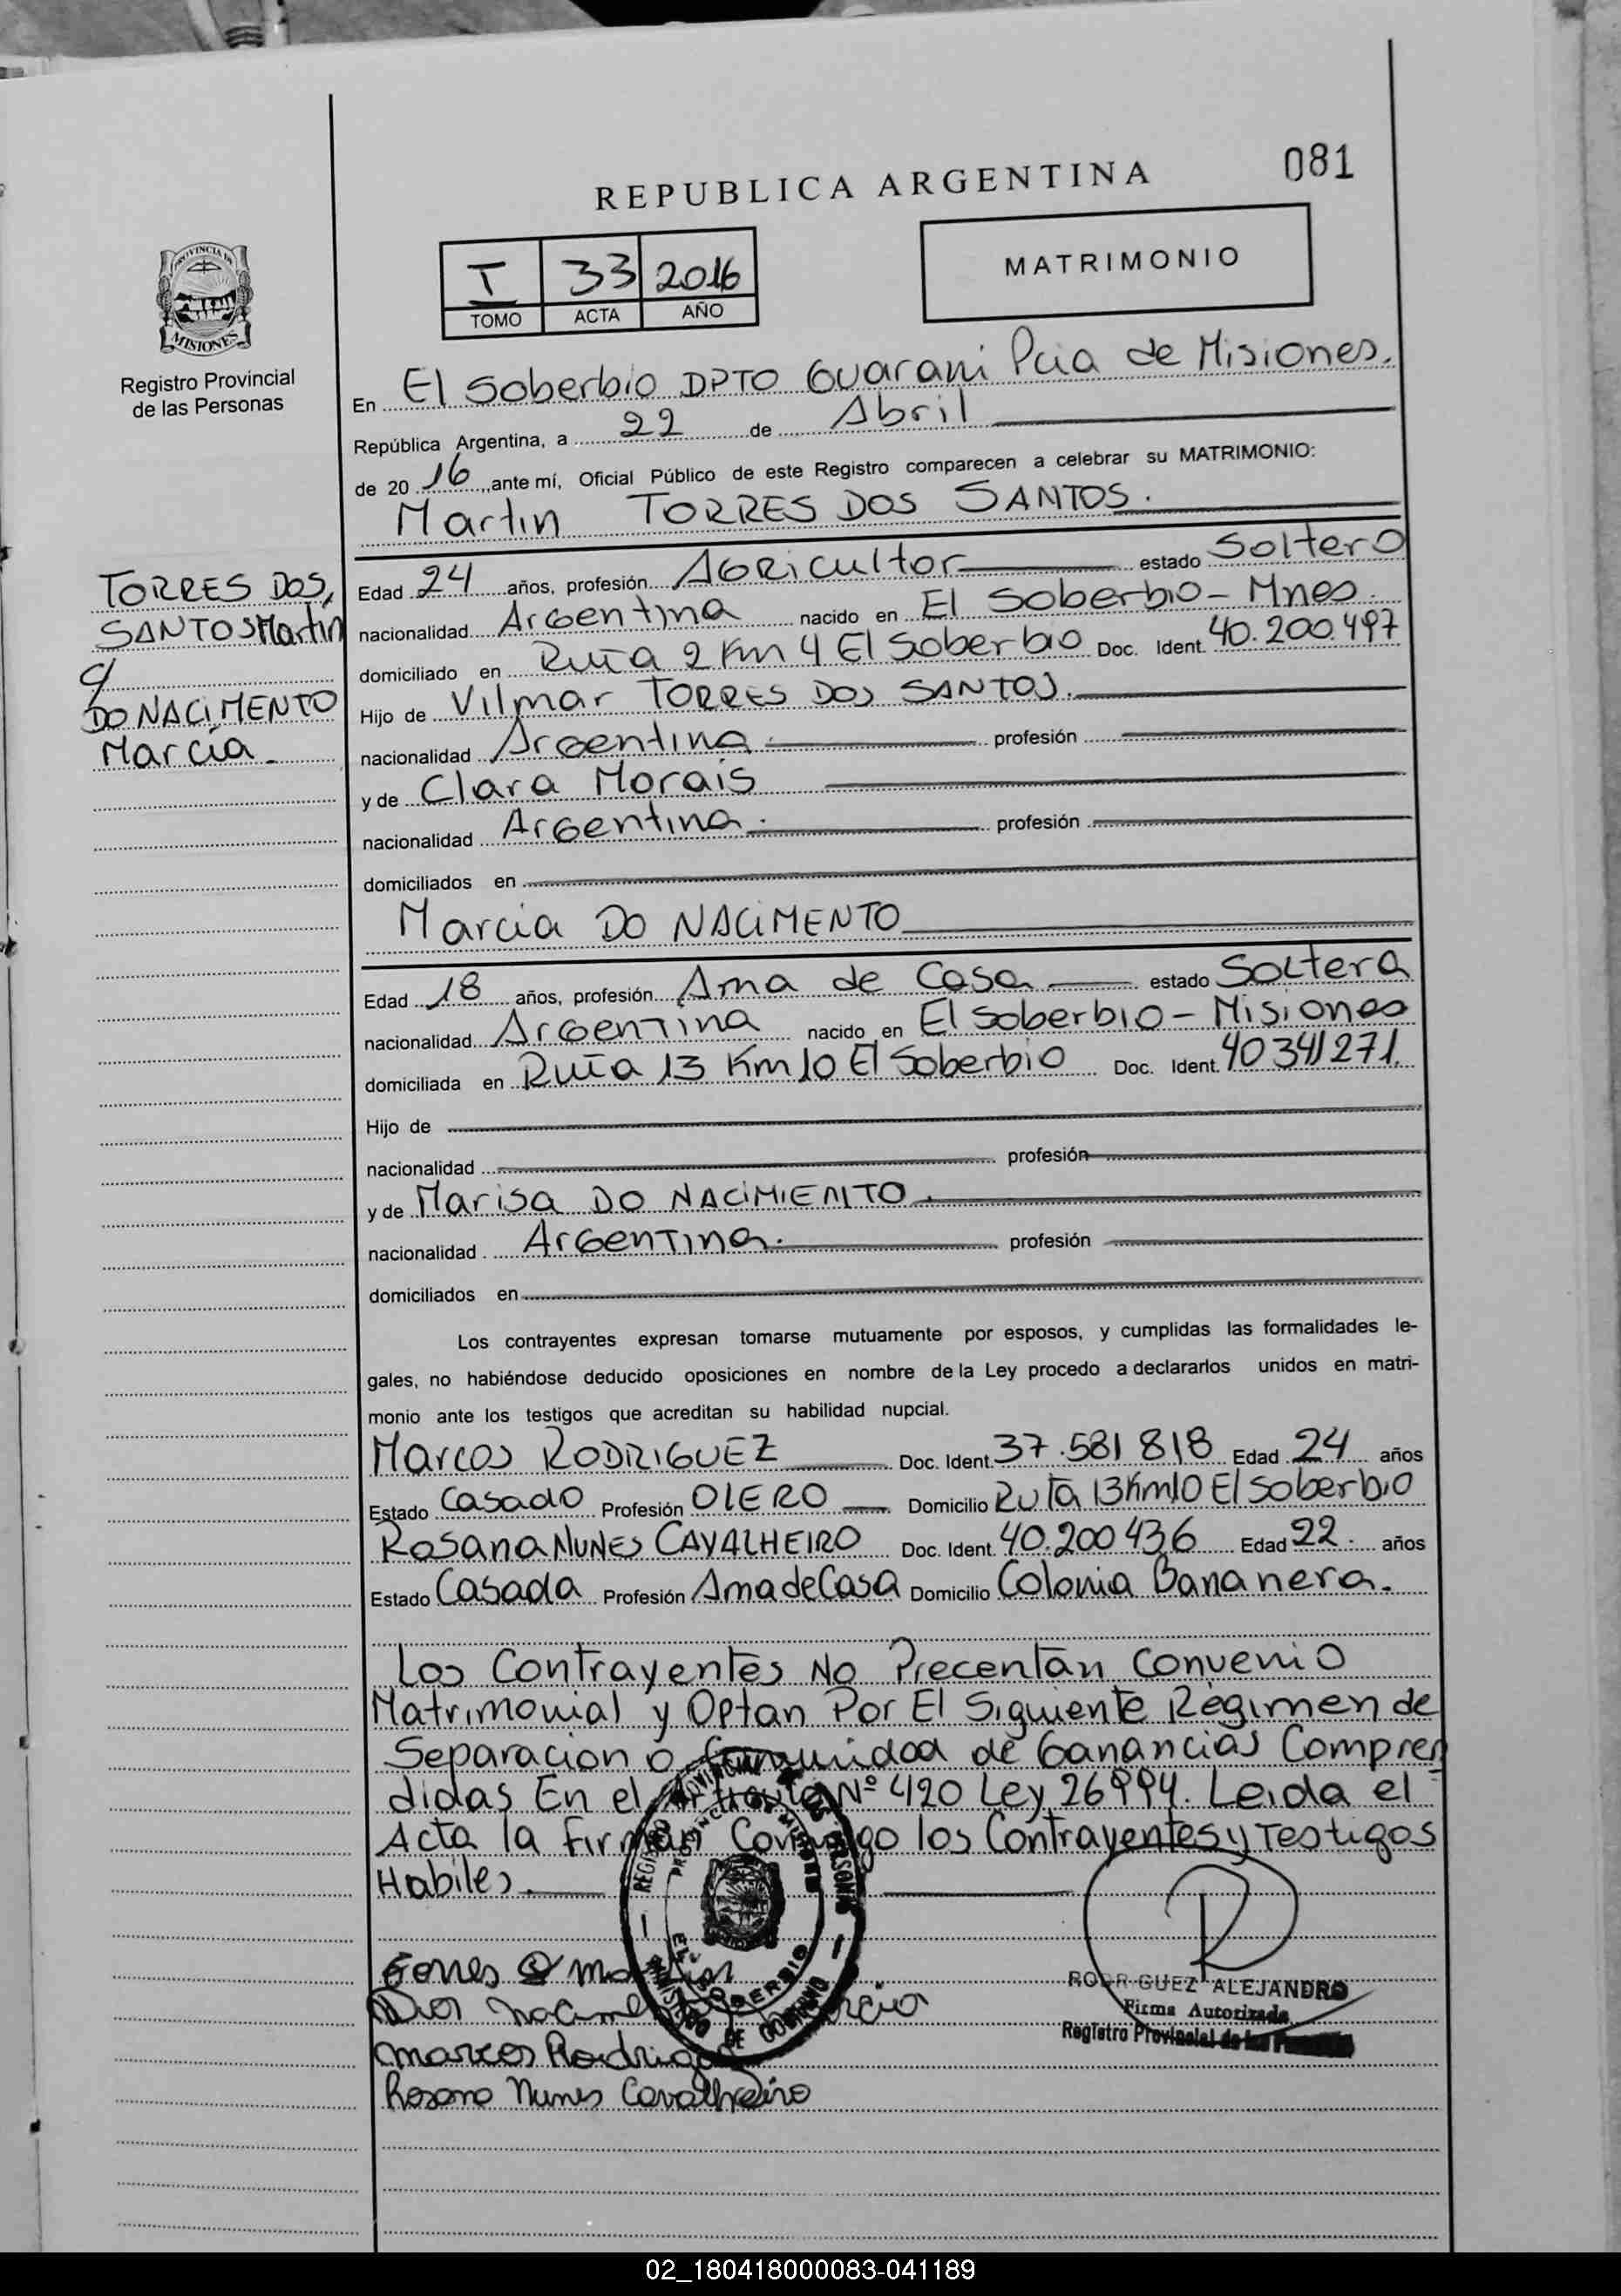 081
REPUBLICA ARGENTINA
PROVINCIA DE
MISIONES
Registro Provincial
de las Personas
I 33 2016
TOMO ACTA AÑO
MATRIMONIO
En El Soberbio DPTO Guarani Pcia de Misiones.
República Argentina, a 22 de Abril
de 2016, ante mí, Oficial Público de este Registro comparecen a celebrar su MATRIMONIO:
Martin TORRES DOS SANTOS.
TORRES DOS
SANTOS Martin
c/
DO NACIMENTO
Marcia
Edad 24 años, profesión Agricultor estado Soltero
nacionalidad Argentina nacido en El Soberbio - Mnes.
domiciliado en Ruta 2 Km 4 El Soberbio Doc. Ident. 40.200.497
Hijo de Vilmar TORRES DOS SANTOS.
nacionalidad Argentina. profesión
y de Clara Morais
nacionalidad Argentina. profesión
domiciliados en
Marcia DO NACIMENTO
Edad 18 años, profesión Ama de Casa estado Soltera
nacionalidad Argentina nacido en El Soberbio - Misiones
domiciliada en Ruta 13 Km 10 El Soberbio Doc. Ident. 40341271.
Hijo de
nacionalidad profesión
y de Marisa DO NACIMIENTO.
nacionalidad Argentina. profesión
domiciliados en
Los contrayentes expresan tomarse mutuamente por esposos, y cumplidas las formalidades le-
gales, no habiéndose deducido oposiciones en nombre de la Ley procedo a declararlos unidos en matri-
monio ante los testigos que acreditan su habilidad nupcial.
Marcos RODRIGUEZ Doc. Ident. 37.581818 Edad 24 años
Estado Casado Profesión OLERO Domicilio Ruta 13 Km10 El Soberbio
Rosana NUNES CAVALHEIRO Doc. Ident. 40.200436 Edad 22. años
Estado Casada Profesión Ama de Casa Domicilio Colonia Bananera.
Los Contrayentes No Precentan Convenio
Matrimonial y Optan Por El Siguiente Régimen de
Separacion o Comunidad de Ganancias Compren
didas En el Articulo Nº 420 Ley 26994. Leida el
Acta la firman Conmigo los Contrayentes y Testigos
Habiles.
REGISTRO PROVINCIAL DE LAS PERSONAS
EL SOBERBIO
MINISTERIO DE GOBIERNO
Marcos Rodrigu
Rosana Nunes Cavalheiro
RODRIGUEZ ALEJANDRO
Firma Autorizada
Registro Provincial de las
02_180418000083-041189